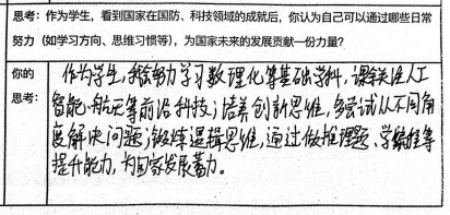 思考：作为学生，看到国家在国防、科技领域的成就后，你认为自己可以通过哪些日常
努力（如学习方向、思维习惯等），为国家未来的发展贡献一份力量？
你的
思考：
作为学生，我会努力学习数理化等基础学科，课余关注人工
智能、航天等前沿科技；培养创新思维，多尝试从不同角
度解决问题；锻炼逻辑思维，通过做推理题、学编程等
提升能力，为国家发展蓄力。